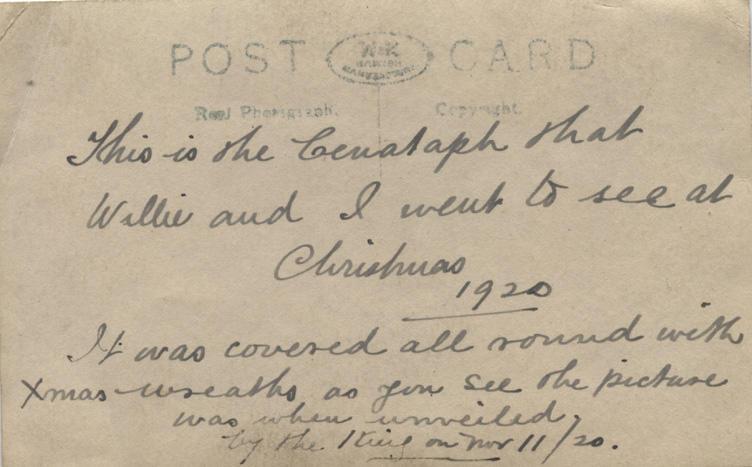 POST CARD
W&K
BRITISH
MANUFACTURE
Real Photograph. Copyright.
This is the Cenataph that
Willie and I went to see at
Christmas
1920
It was covered all round with
Xmas wreaths, as you see the picture
was when unveiled,
by the King on Nov 11/20.